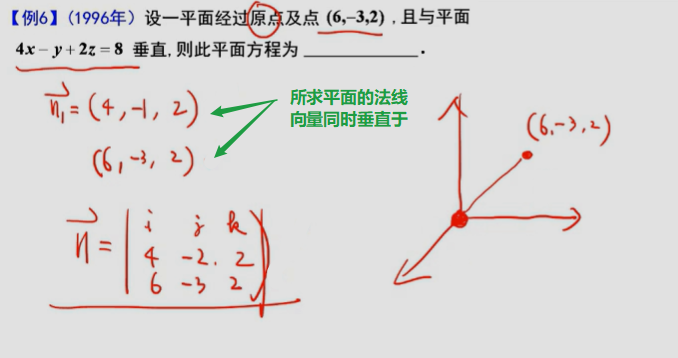 【例6】(1996年) 设一平面经过原点及点 (6,−3,2) , 且与平面
4x − y + 2z = 8 垂直, 则此平面方程为 ____________ .
n₁ = (4, -1, 2)
所求平面的法线
向量同时垂直于
(6, -3, 2)
(6, -3, 2)
n = | i j k |
4 -2. 2
6 -3 2